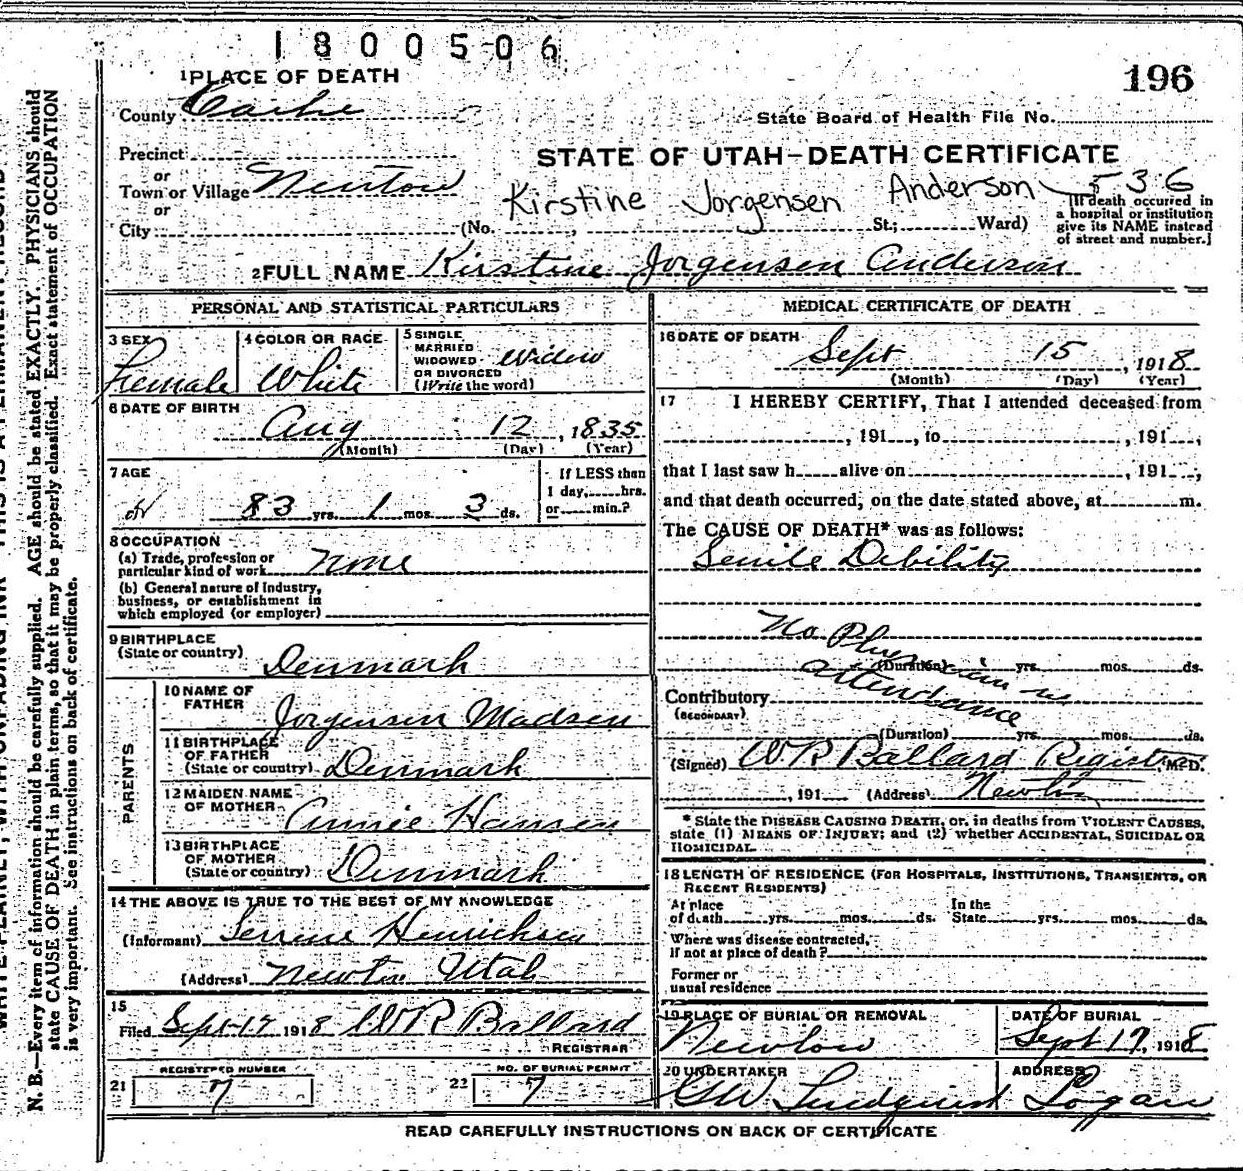 1800506
196
1 PLACE OF DEATH
County Cache
State Board of Health File No.
Precinct
or
Town or Village Newton
or
City
STATE OF UTAH-DEATH CERTIFICATE
Kirstine Jorgensen Anderson 536
(No. , St.; Ward)
[If death occurred in
a hospital or institution
give its NAME instead
of street and number.]
2 FULL NAME Kirstine Jorgensen Anderson
PERSONAL AND STATISTICAL PARTICULARS
3 SEX
Female
4 COLOR OR RACE
White
5 SINGLE
MARRIED
WIDOWED
OR DIVORCED
(Write the word)
Widow
6 DATE OF BIRTH
Aug 12, 1835
(Month) (Day) (Year)
7 AGE
83 yrs. 1 mos. 3 ds.
If LESS than
1 day, hrs.
or min.?
8 OCCUPATION
(a) Trade, profession or
particular kind of work None
(b) General nature of industry,
business, or establishment in
which employed (or employer)
9 BIRTHPLACE
(State or country) Denmark
PARENTS
10 NAME OF
FATHER
Jorgensen Madsen
11 BIRTHPLACE
OF FATHER
(State or country) Denmark
12 MAIDEN NAME
OF MOTHER
Annie Hansen
13 BIRTHPLACE
OF MOTHER
(State or country) Denmark
14 THE ABOVE IS TRUE TO THE BEST OF MY KNOWLEDGE
(Informant) Serrene Henrichsen
(Address) Newton Utah
15
Filed Sept 17 1918 W R Ballard
REGISTRAR
REGISTERED NUMBER
21 7
NO. OF BURIAL PERMIT
22 7
MEDICAL CERTIFICATE OF DEATH
16 DATE OF DEATH
Sept 15, 1918
(Month) (Day) (Year)
17 I HEREBY CERTIFY, That I attended deceased from
, 191 , to , 191 ,
that I last saw h alive on , 191 ,
and that death occurred, on the date stated above, at m.
The CAUSE OF DEATH* was as follows:
Senile Debility
No Physician in
attendance
(Duration) yrs. mos. ds.
Contributory
(SECONDARY)
(Duration) yrs. mos. ds.
(Signed) W R Ballard Registrar, M.D.
, 191 (Address) Newton
* State the DISEASE CAUSING DEATH, or, in deaths from VIOLENT CAUSES,
state (1) MEANS OF INJURY; and (2) whether ACCIDENTAL, SUICIDAL OR
HOMICIDAL.
18 LENGTH OF RESIDENCE (FOR HOSPITALS, INSTITUTIONS, TRANSIENTS, OR
RECENT RESIDENTS)
At place
of death yrs. mos. ds.
In the
State yrs. mos. ds.
Where was disease contracted,
If not at place of death?
Former or
usual residence
19 PLACE OF BURIAL OR REMOVAL
Newton
DATE OF BURIAL
Sept 17, 1918
20 UNDERTAKER
GW Lindquist
ADDRESS
Logan
READ CAREFULLY INSTRUCTIONS ON BACK OF CERTIFICATE
N. B.—Every item of information should be carefully supplied. AGE should be stated EXACTLY. PHYSICIANS should
state CAUSE OF DEATH in plain terms, so that it may be properly classified. Exact statement of OCCUPATION
is very important. See instructions on back of certificate.